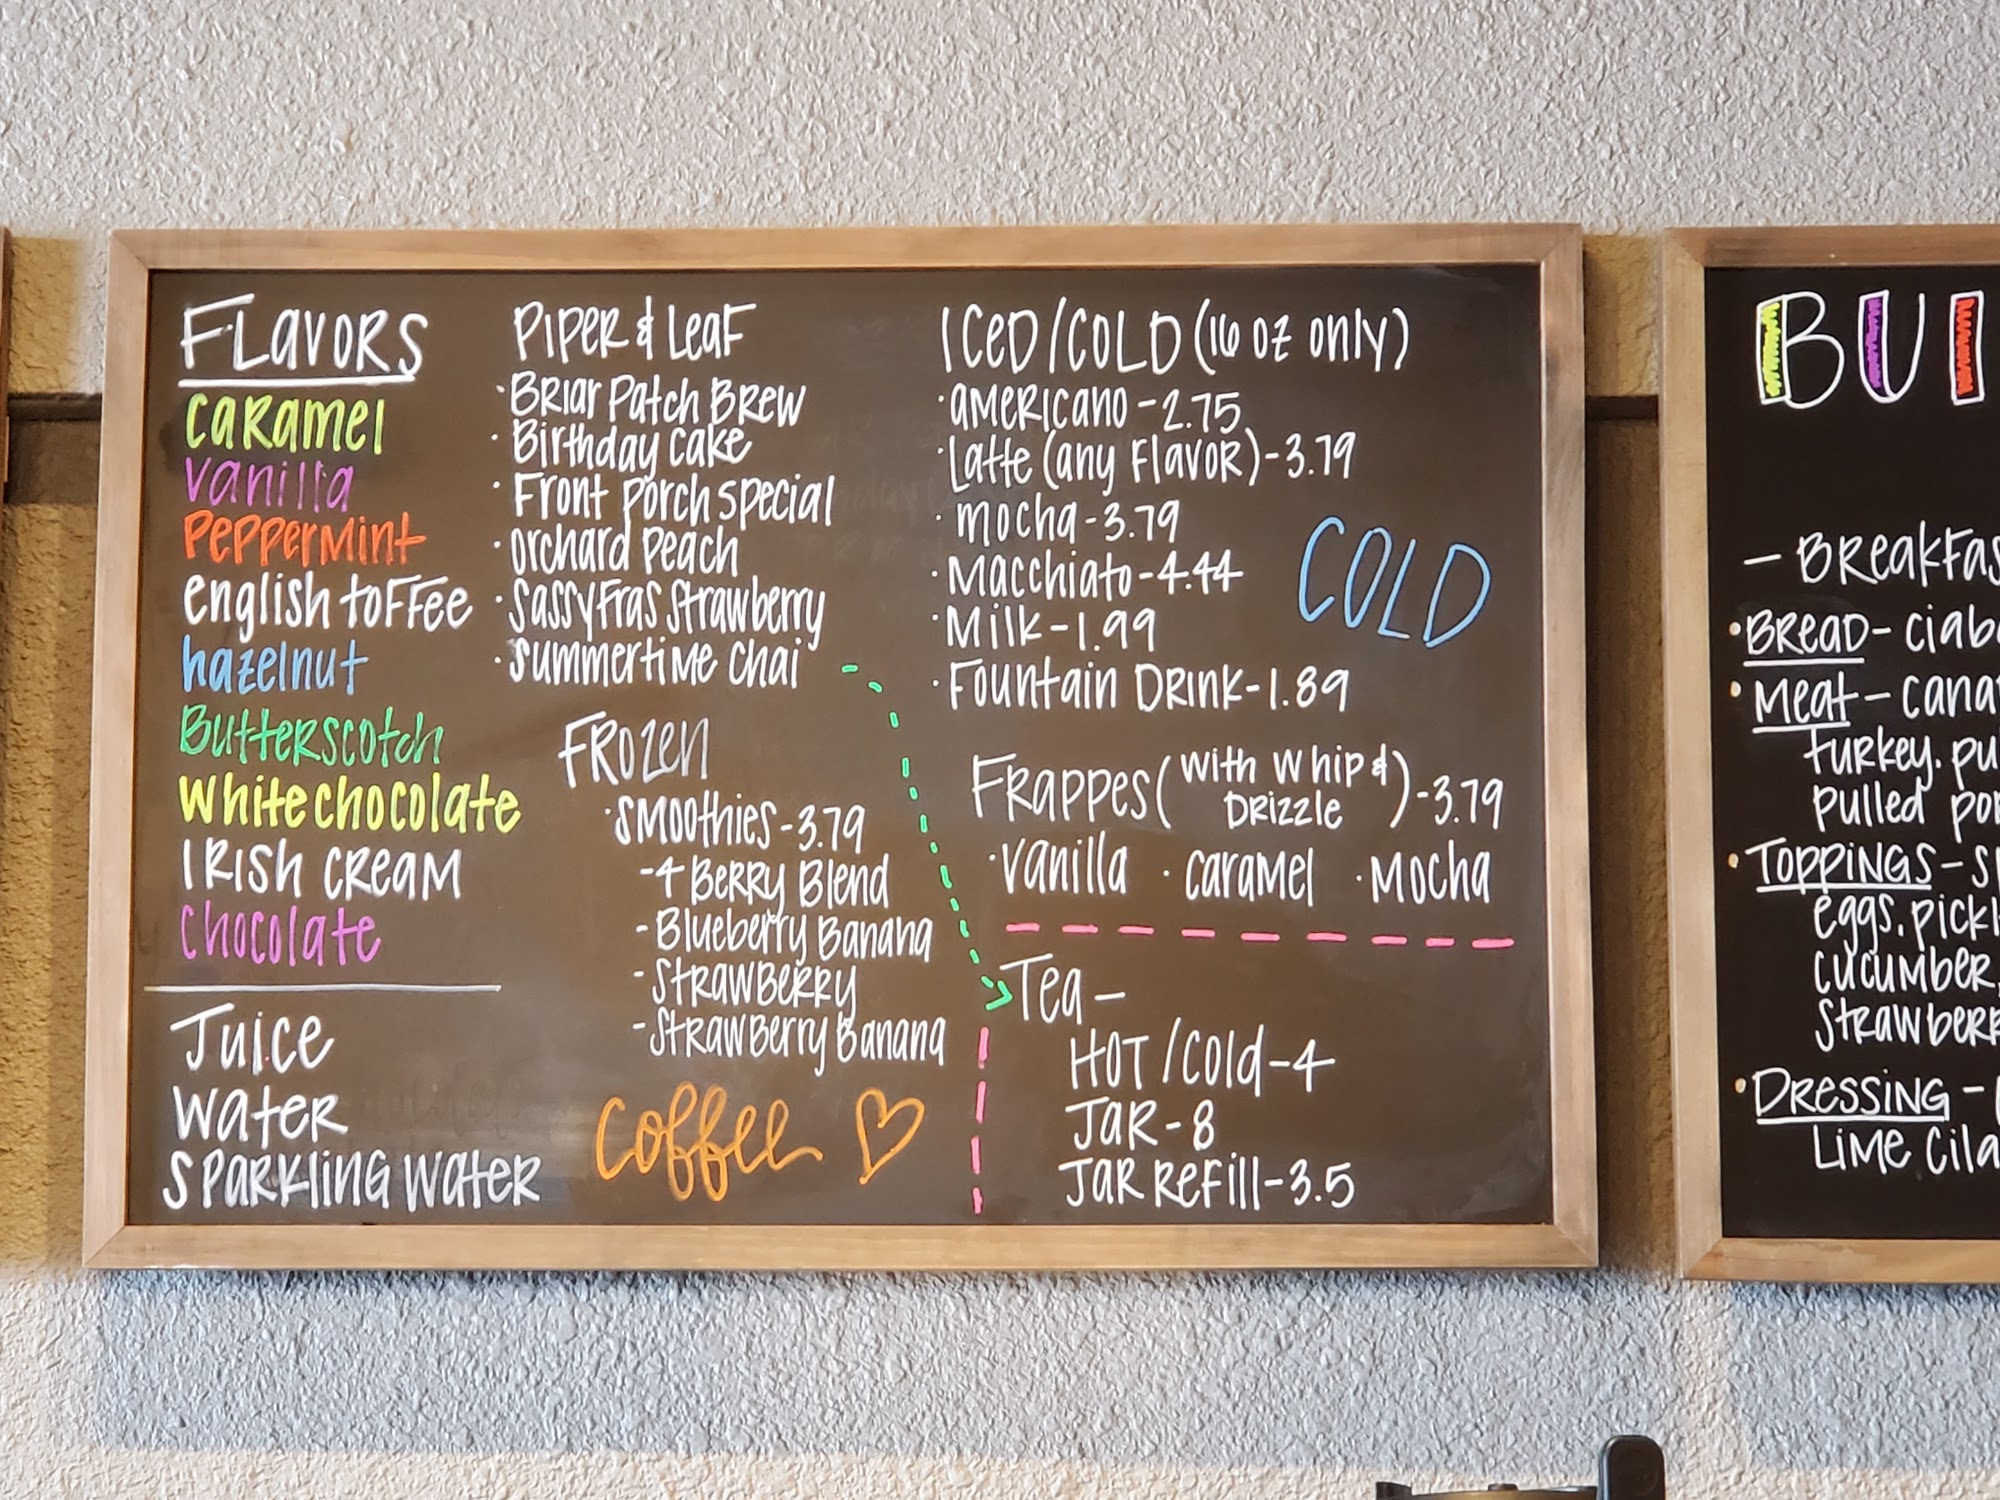 Flavors
Caramel
Vanilla
Peppermint
English Toffee
Hazelnut
Butterscotch
White Chocolate
Irish Cream
Chocolate
Juice
Water
Sparkling Water
Piper & Leaf
· Briar Patch Brew
· Birthday Cake
· Front Porch Special
· Orchard Peach
· Sassyfras Strawberry
· Summertime Chai
Frozen
· Smoothies - 3.79
- 4 Berry Blend
- Blueberry Banana
- Strawberry
- Strawberry Banana
Coffee
Iced/Cold (16 oz only)
· Americano - 2.75
· Latte (any Flavor) - 3.79
· Mocha - 3.79
· Macchiato - 4.44
· Milk - 1.99
· Fountain Drink - 1.89
COLD
Frappes (with Whip & Drizzle) - 3.79
· Vanilla · Caramel · Mocha
Tea -
Hot/Cold - 4
Jar - 8
Jar Refill - 3.5
BUI
- Breakfas
· Bread - Ciab
· Meat - Cana
Turkey. Pu
Pulled Por
· Toppings - S
Eggs. Pickl
Cucumber.
Strawberr
· Dressing -
Lime Cila